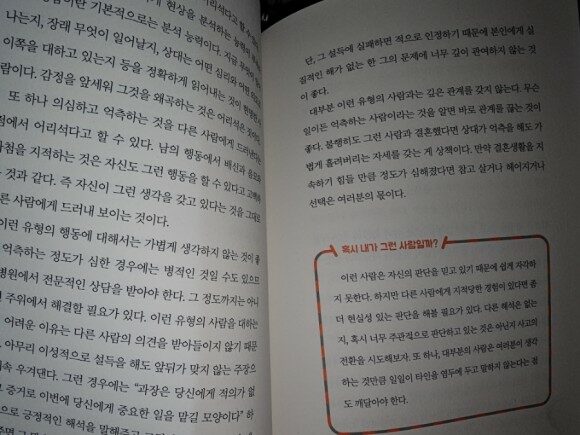 기본적으로는 분석 능력이다.
나는지, 장래 무엇이 일어날지, 상대는 어떤 심리와
이쪽을 대하고 있는지 등을 정확하게 읽어내는 것이
람이다. 감정을 앞세워 그것을 왜곡하는 것은 어리석은
또 하나 의심하고 억측하는 것을 다른 사람에게 드러낸다는
점에서 어리석다고 할 수 있다. 남의 행동에서 배신과
지적하는 것은 자신도 그런 행동을 할 수 있다고
것과 같다. 즉 자신이 그런 생각을 갖고 있다는 것을 그대로
른 사람에게 드러내 보이는 것이다.
이런 유형의 행동에 대해서는 가볍게 생각하지 않는 것이 좋
억측하는 정도가 심한 경우에는 병적인 것일 수도 있으므
병원에서 전문적인 상담을 받아야 한다. 그 정도까지는 아니
주위에서 해결할 필요가 있다. 이런 유형의 사람을 대하는
어려운 이유는 다른 사람의 의견을 받아들이지 않기 때문
아무리 이성적으로 설득을 해도 앞뒤가 맞지 않는 주장으
우겨댄다. 그런 경우에는 "과장은 당신에게 적의가 없
증거로 이번에 당신에게 중요한 일을 맡길 모양이다" 하
으로 긍정적인 해석을 말해주고
단, 그 설득에 실패하면 적으로 인정하기 때문에 본인에게 실
질적인 해가 없는 한 그의 문제에 너무 깊이 관여하지 않는 것
이 좋다.
대부분 이런 유형의 사람과는 깊은 관계를 갖지 않는다. 무슨
일이든 억측하는 사람이라는 것을 알면 바로 관계를 끊는 것이
좋다. 불행히도 그런 사람과 결혼했다면 상대가 억측을 해도 가
볍게 흘려버리는 자세를 갖는 게 상책이다. 만약 결혼생활을 지
속하기 힘들 만큼 정도가 심해졌다면 참고 살거나 헤어지거나
선택은 여러분의 몫이다.
혹시 내가 그런 사람일까?
이런 사람은 자신의 판단을 믿고 있기 때문에 쉽게 자각하
지 못한다. 하지만 다른 사람에게 지적당한 경험이 있다면 좀
더 현실성 있는 판단을 해볼 필요가 있다. 다른 해석은 없는
지, 혹시 너무 주관적으로 판단하고 있는 것은 아닌지 사고의
전환을 시도해보자. 또 하나, 대부분의 사람은 여러분이 생각
하는 것만큼 일일이 타인을 염두에 두고 말하지 않는다는 점
도 깨달아야 한다.